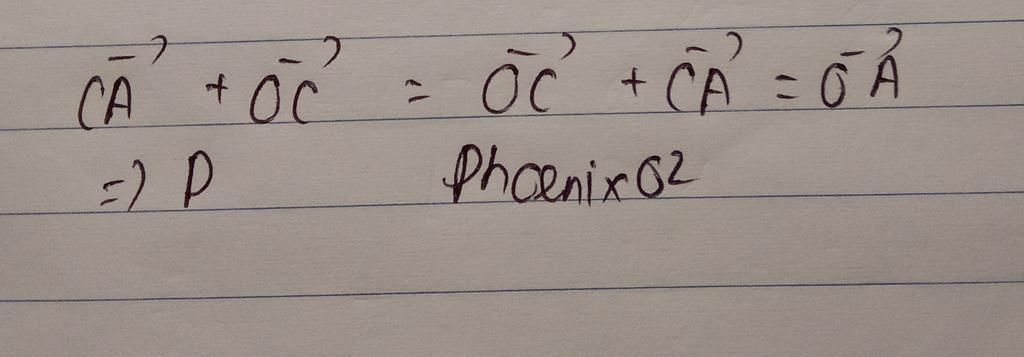 CA⃗ + OC⃗ = OC⃗ + CA⃗ = OA⃗
=> D Phoenix02